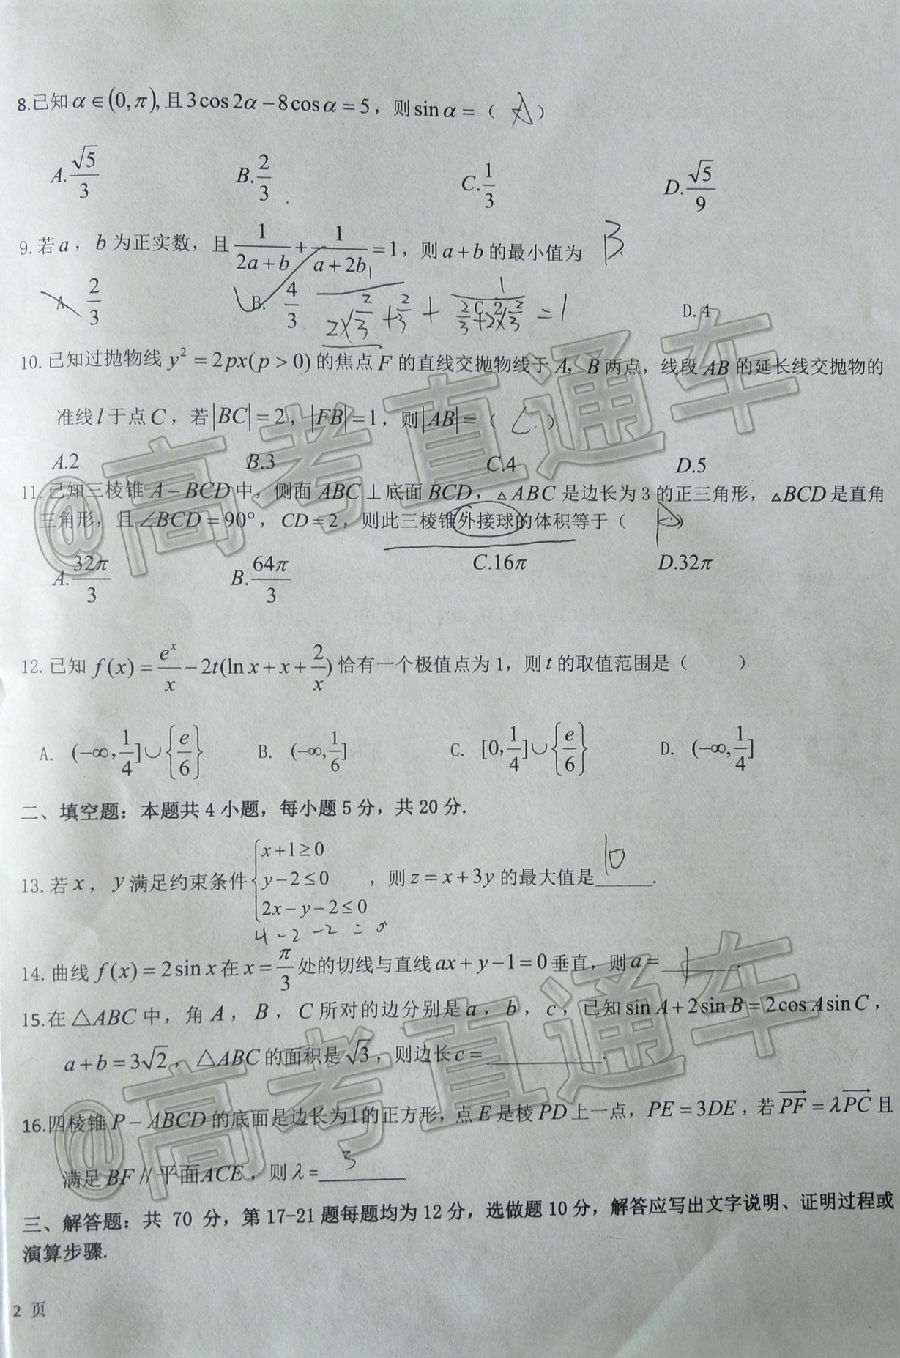 8.已知α∈(0,π),且3cos2α-8cosα=5，则sinα=（ A ）
A.√5/3 B.2/3. C.1/3 D.√5/9
9.若a，b为正实数，且1/(2a+b)+1/(a+2b)=1，则a+b的最小值为 B
A. 2/3 B. 4/3 C. 2 D.4
1/(2×2/3+2/3) + 1/(2/3+2×2/3) =1
10.已知过抛物线y²=2px(p>0)的焦点F的直线交抛物线于A，B两点，线段AB的延长线交抛物的
准线l于点C，若|BC|=2，|FB|=1，则|AB|=（ C ）
A.2 B.3 C.4 D.5
11.已知三棱锥A-BCD中，侧面ABC⊥底面BCD，△ABC是边长为3的正三角形，△BCD是直角
三角形，且∠BCD=90°，CD=2，则此三棱锥外接球的体积等于（
A.32π/3 B.64π/3 C.16π D.32π
12.已知f(x)=eˣ/x-2t(lnx+x+2/x)恰有一个极值点为1，则t的取值范围是（ ）
A. (-∞,1/4]∪{e/6} B. (-∞,1/6] C. [0,1/4]∪{e/6} D. (-∞,1/4]
二、填空题：本题共4小题，每小题5分，共20分.
x+1≥0
13.若x，y满足约束条件{y-2≤0，则z=x+3y的最大值是 10 .
2x-y-2≤0
4-2-2=0
14.曲线f(x)=2sinx在x=π/3处的切线与直线ax+y-1=0垂直，则a= 1 .
15.在△ABC中，角A，B，C所对的边分别是a，b，c，已知sinA+2sinB=2cosAsinC，
a+b=3√2，△ABC的面积是√3，则边长c=________.
16.四棱锥P-ABCD的底面是边长为1的正方形，点E是棱PD上一点，PE=3DE，若PF=λPC且
满足BF//平面ACE，则λ= 3
三、解答题：共 70 分，第17-21题每题均为12分，选做题10分，解答应写出文字说明、证明过程或
演算步骤.
2 页
@高考直通车
@高考直通车